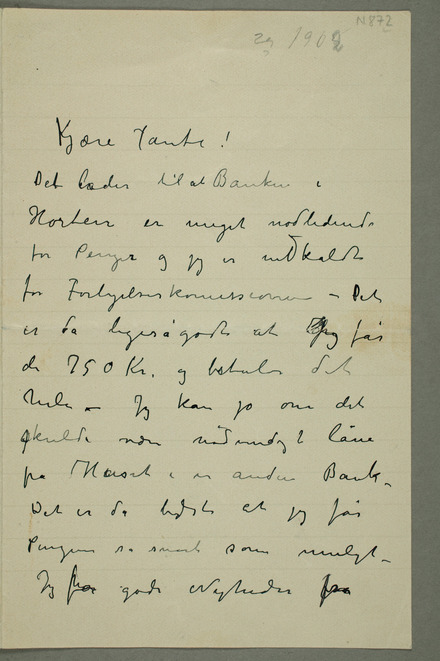 N 872
29 1902
Kjære Tante!
Det lader til at Banken i
Horten er meget nødlidende
for Penger og jeg er indkaldt
for Forligelseskomissionen – Det
er da ligeså godt at jeg får
de 750 Kr. og betaler det
hele – Jeg kan jo om det
skulde være nødvendigt låne
på Huset i en anden Bank –
Det er da bedst at jeg får
Pengene så snart som muligt –
Jeg har gode Nyheder fra